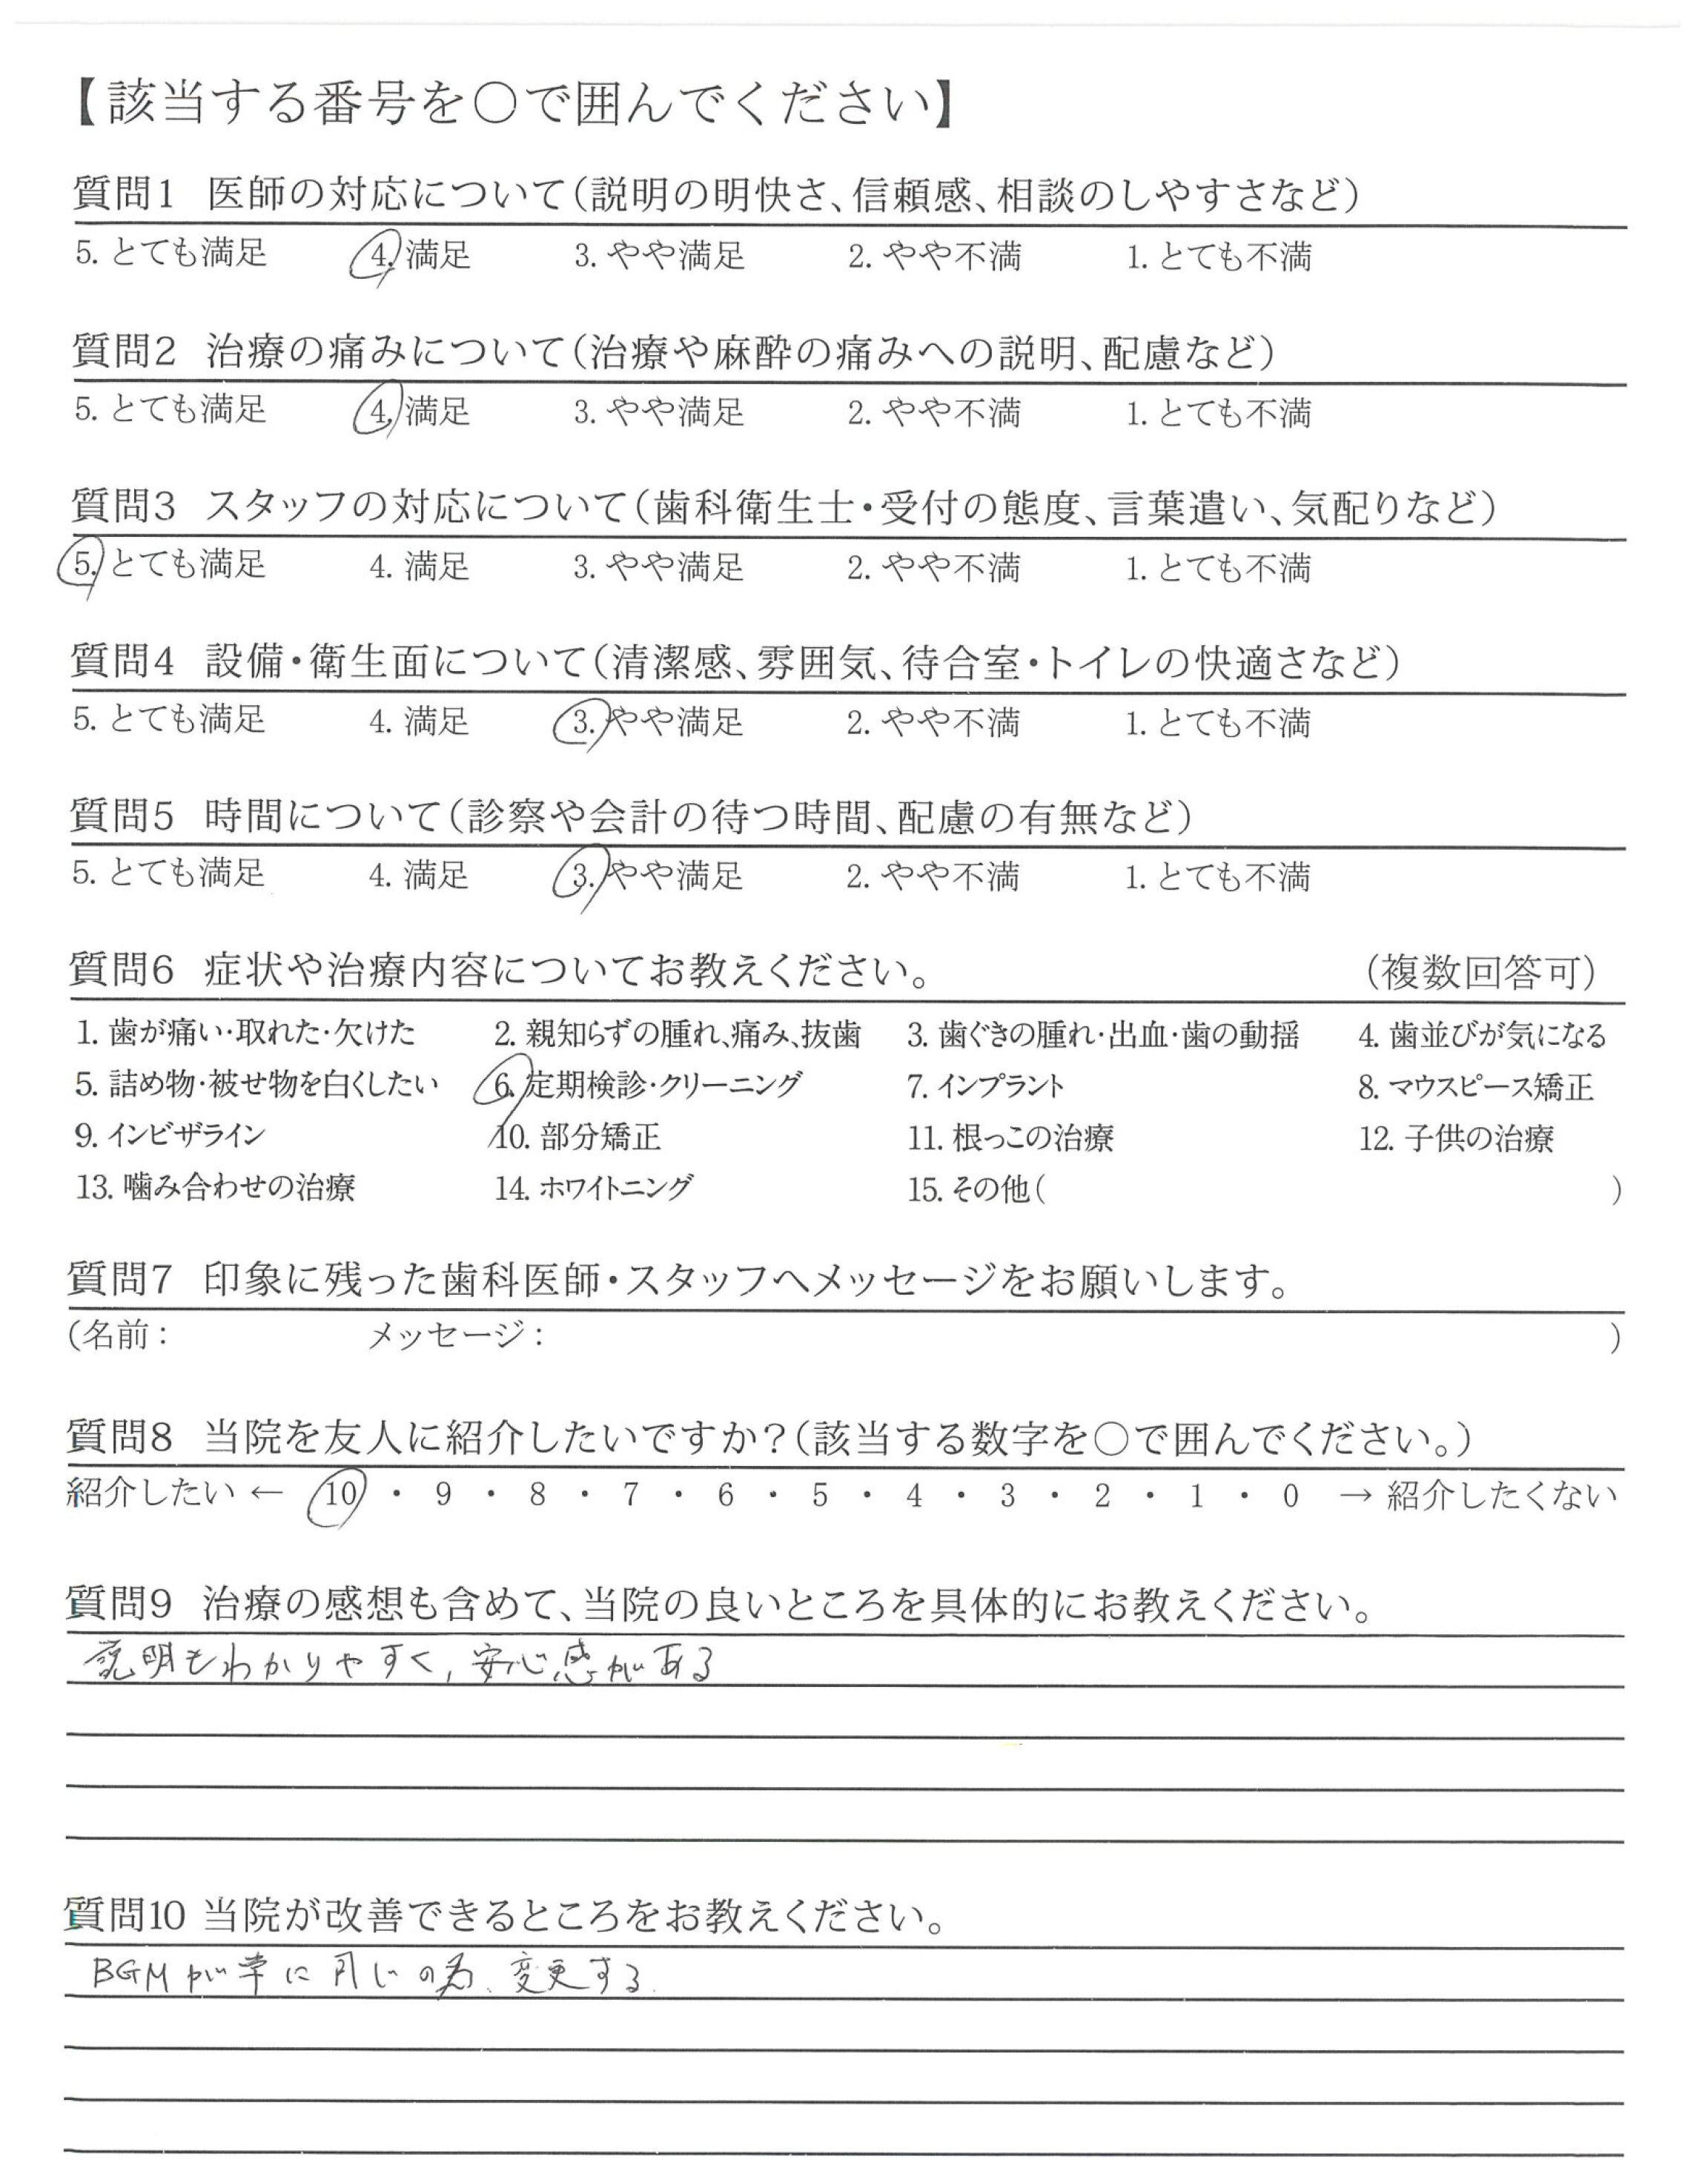 【該当する番号を〇で囲んでください】
質問1 医師の対応について(説明の明快さ、信頼感、相談のしやすさなど)
5. とても満足 4. 満足 3. やや満足 2. やや不満 1. とても不満
質問2 治療の痛みについて(治療や麻酔の痛みへの説明、配慮など)
5. とても満足 4. 満足 3. やや満足 2. やや不満 1. とても不満
質問3 スタッフの対応について(歯科衛生士・受付の態度、言葉遣い、気配りなど)
5. とても満足 4. 満足 3. やや満足 2. やや不満 1. とても不満
質問4 設備・衛生面について(清潔感、雰囲気、待合室・トイレの快適さなど)
5. とても満足 4. 満足 3. やや満足 2. やや不満 1. とても不満
質問5 時間について(診察や会計の待つ時間、配慮の有無など)
5. とても満足 4. 満足 3. やや満足 2. やや不満 1. とても不満
質問6 症状や治療内容についてお教えください。 (複数回答可)
1. 歯が痛い・取れた・欠けた 2. 親知らずの腫れ、痛み、抜歯 3. 歯ぐきの腫れ・出血・歯の動揺 4. 歯並びが気になる
5. 詰め物・被せ物を白くしたい 6. 定期検診・クリーニング 7. インプラント 8. マウスピース矯正
9. インビザライン 10. 部分矯正 11. 根っこの治療 12. 子供の治療
13. 噛み合わせの治療 14. ホワイトニング 15. その他( )
質問7 印象に残った歯科医師・スタッフへメッセージをお願いします。
(名前: メッセージ: )
質問8 当院を友人に紹介したいですか?(該当する数字を〇で囲んでください。)
紹介したい ← 10 ・ 9 ・ 8 ・ 7 ・ 6 ・ 5 ・ 4 ・ 3 ・ 2 ・ 1 ・ 0 → 紹介したくない
質問9 治療の感想も含めて、当院の良いところを具体的にお教えください。
説明もわかりやすく、安心感がある
質問10 当院が改善できるところをお教えください。
BGMが常に同じの為、変更する.